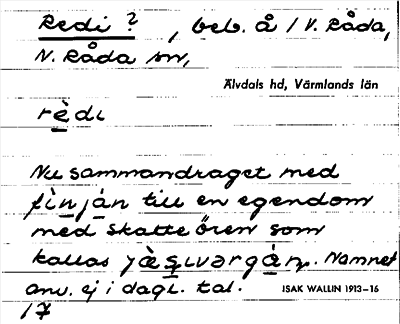 Redi ?, beb. å 1 V. Råda,
N. Råda sn,
Älvdals hd, Värmlands län
rè̱di
Nu sammandraget med
fìn̠ján till en egendom
med skatteören som
kallas Namnet
anv. ej i dagl. tal.
ISAK WALLIN 1913–16
17